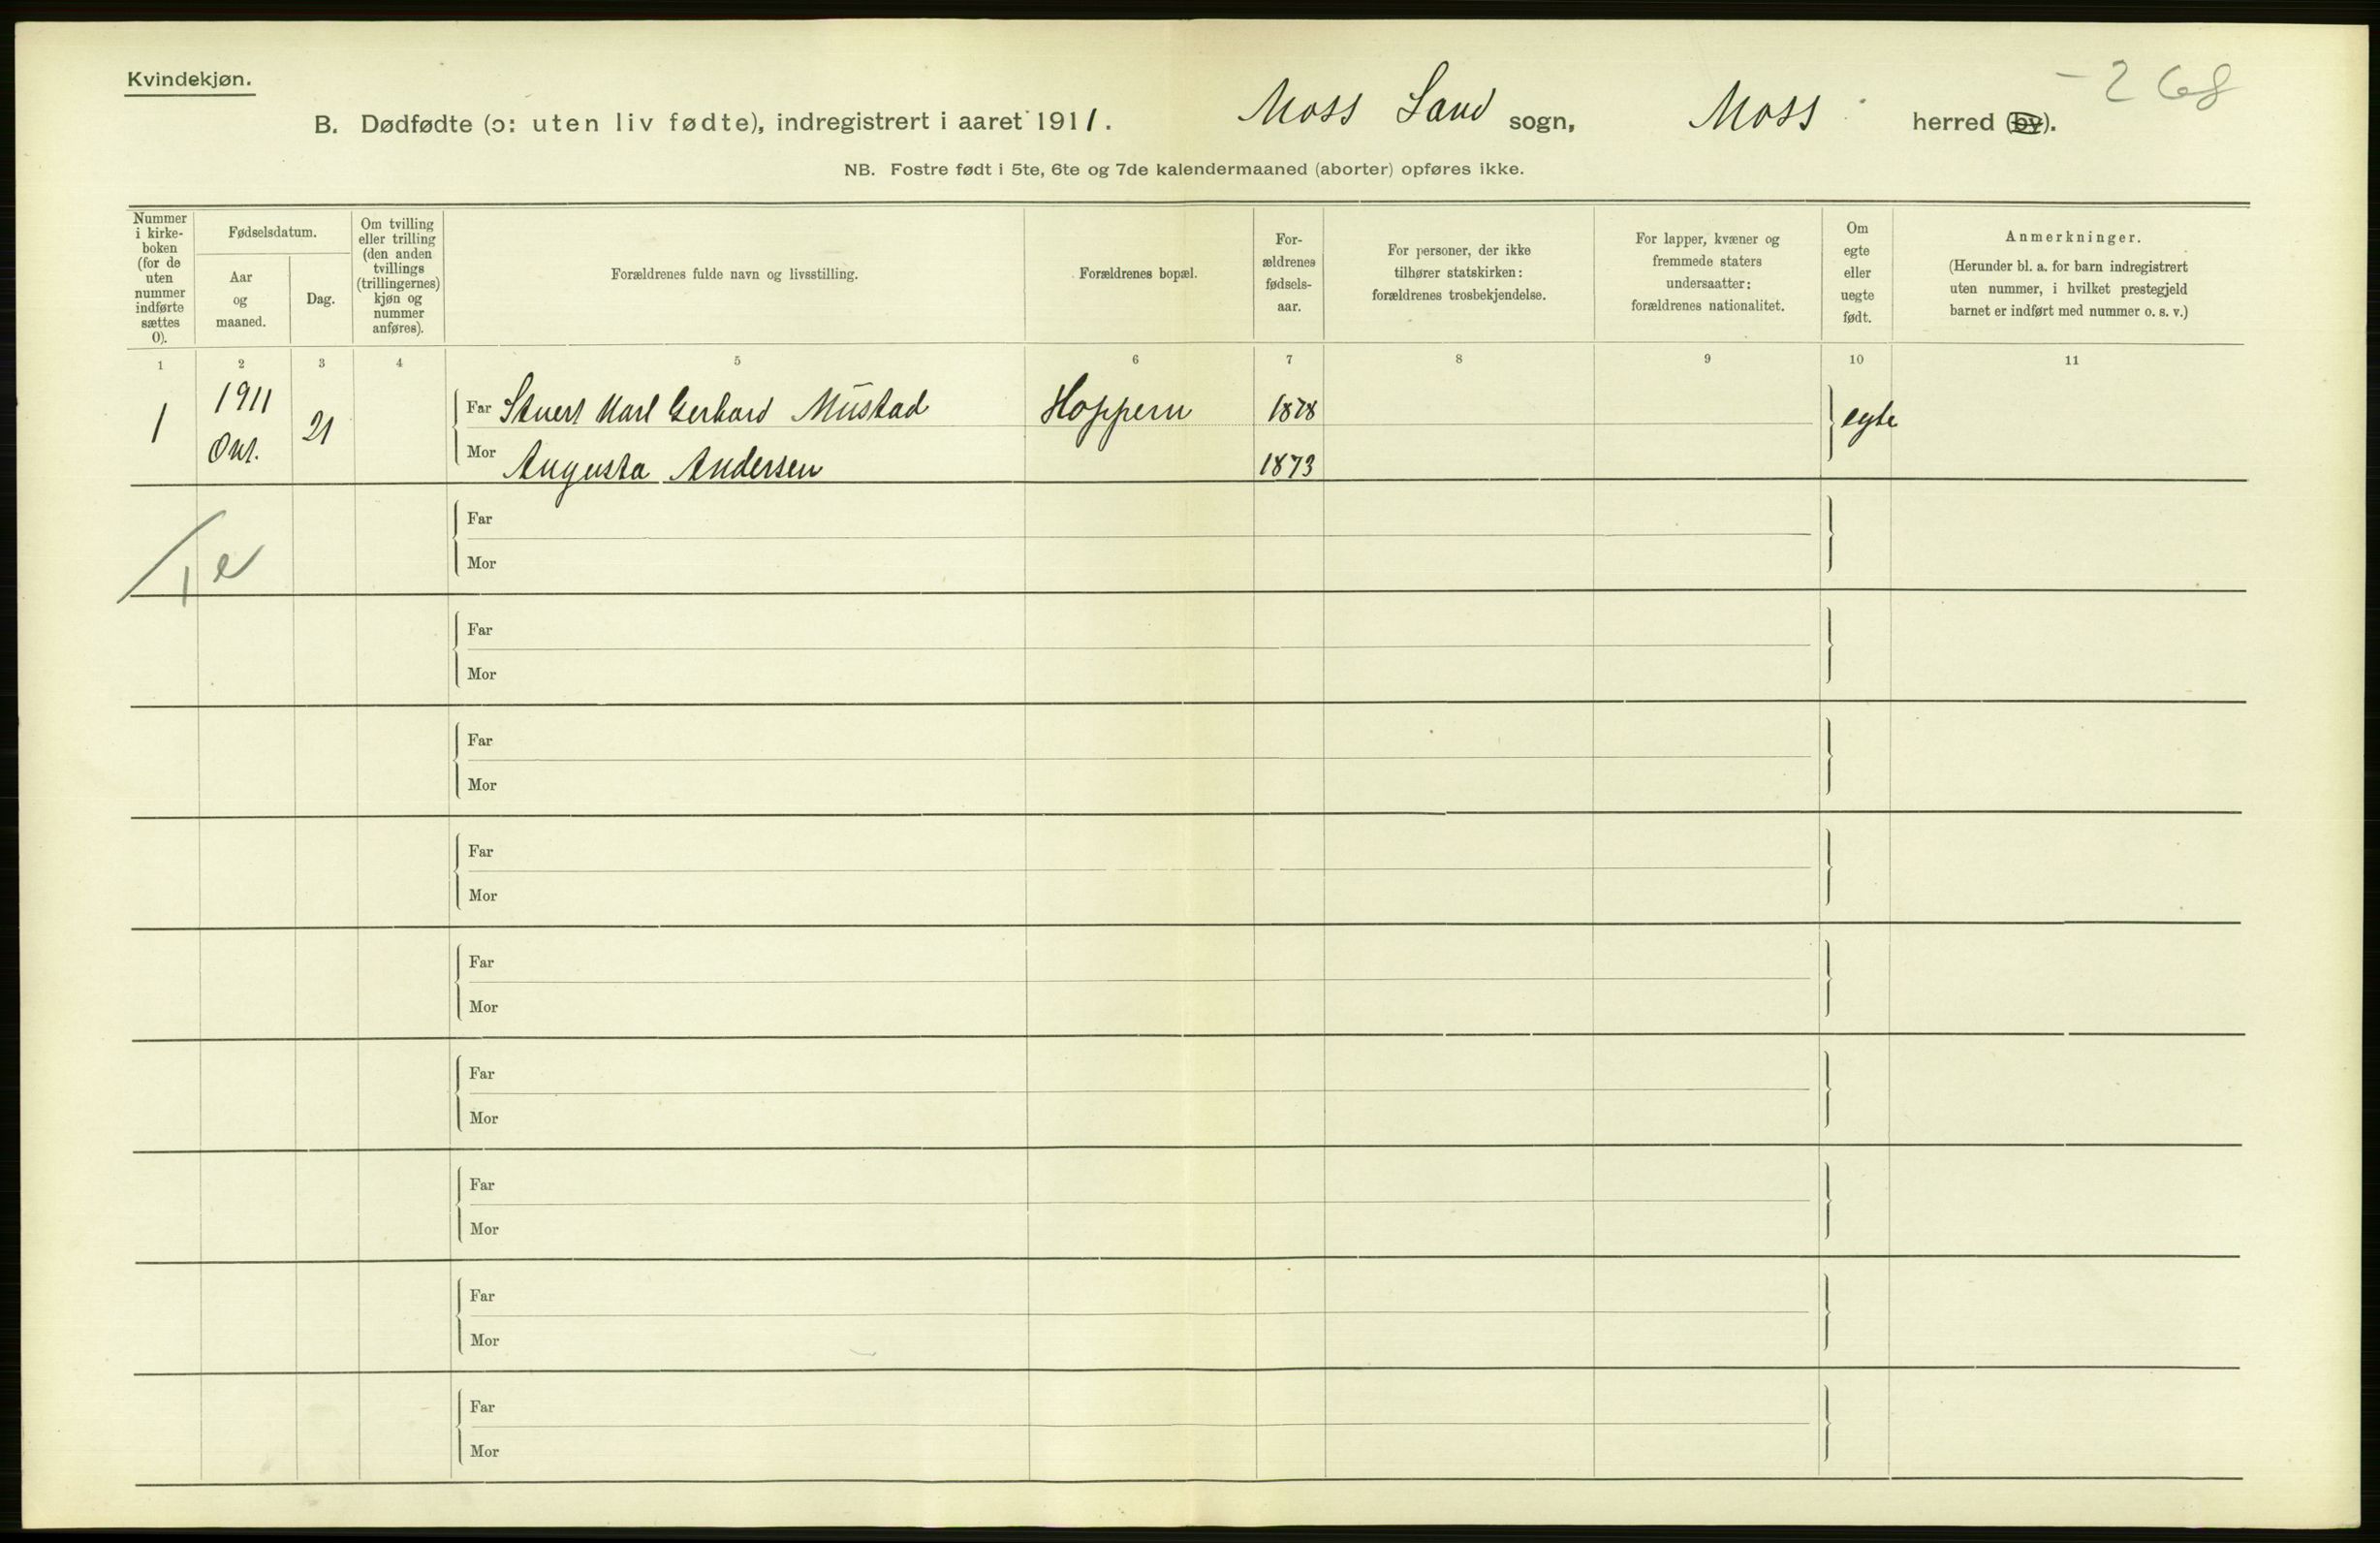 Kvindekjøn.
- 268
B. Dødfødte (ɔ: uten liv fødte), indregistrert i aaret 1911. Moss Land sogn, Moss herred (by).
NB. Fostre født i 5te, 6te og 7de kalendermaaned (aborter) opføres ikke.
Nummer
i kirke-
boken
(for de
uten
nummer
indførte
sættes
0).
Fødselsdatum.
Aar
og
maaned.
Dag.
Om tvilling
eller trilling
(den anden
tvillings
(trillingernes)
kjøn og
nummer
anføres).
Forældrenes fulde navn og livsstilling.
Forældrenes bopæl.
For-
ældrenes
fødsels-
aar.
For personer, der ikke
tilhører statskirken:
forældrenes trosbekjendelse.
For lapper, kvæner og
fremmede staters
undersaatter:
forældrenes nationalitet.
Om
egte
eller
uegte
født.
Anmerkninger.
(Herunder bl. a. for barn indregistrert
uten nummer, i hvilket prestegjeld
barnet er indført med nummer o. s. v.)
1 2 3 4 5 6 7 8 9 10 11
1 1911 Okt. 21
Far Stuert Karl Gerhard Mustad Hoppern 1878 egte
Mor Augusta Andersen 1873
1 e
Far
Mor
Far
Mor
Far
Mor
Far
Mor
Far
Mor
Far
Mor
Far
Mor
Far
Mor
Far
Mor